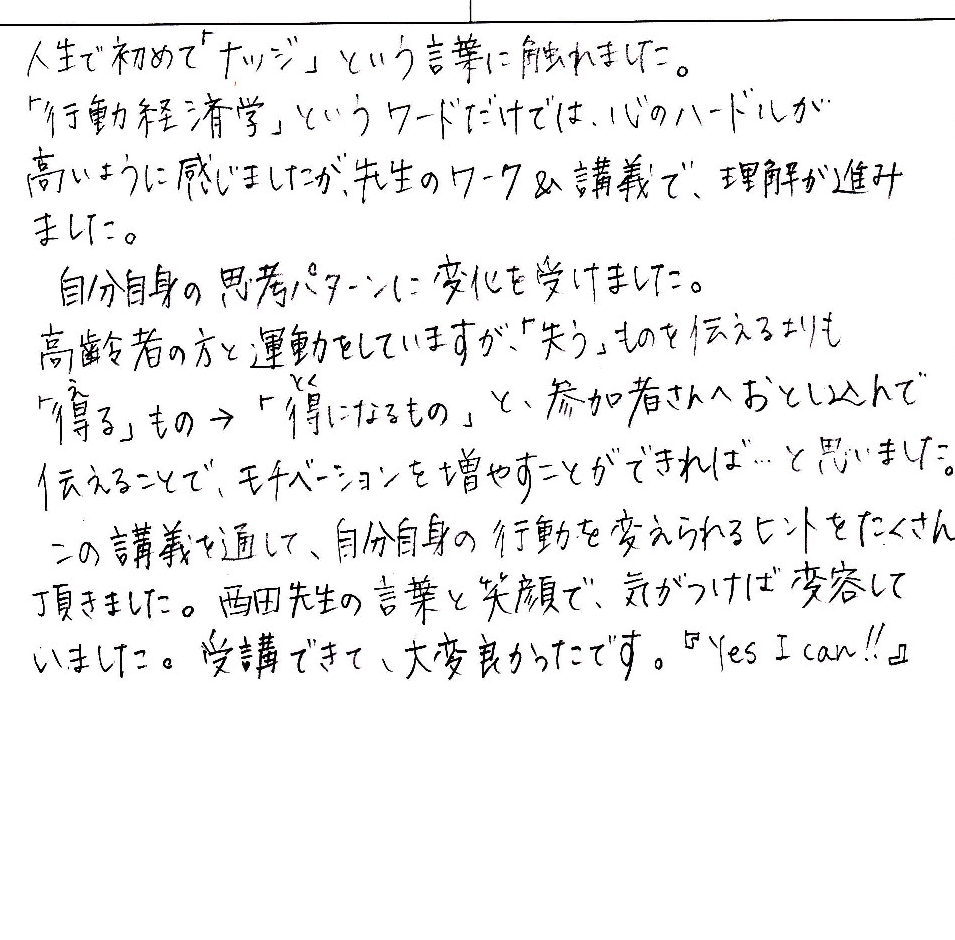 人生で初めて「ナッジ」という言葉に触れました。
「行動経済学」というワードだけでは、心のハードルが
高いように感じましたが、先生のワーク&講義で、理解が進み
ました。
自分自身の思考パターンに変化を受けました。
高齢者の方と運動をしていますが、「失う」ものを伝えるよりも
え とく
「得る」もの→「得になるもの」と、参加者さんへおとし込んで
伝えることで、モチベーションを増やすことができれば…と思いました。
この講義を通して、自分自身の行動を変えられるヒントをたくさん
頂きました。西田先生の言葉と笑顔で、気がつけば変容して
いました。受講できて、大変良かったです。『Yes I can!!』